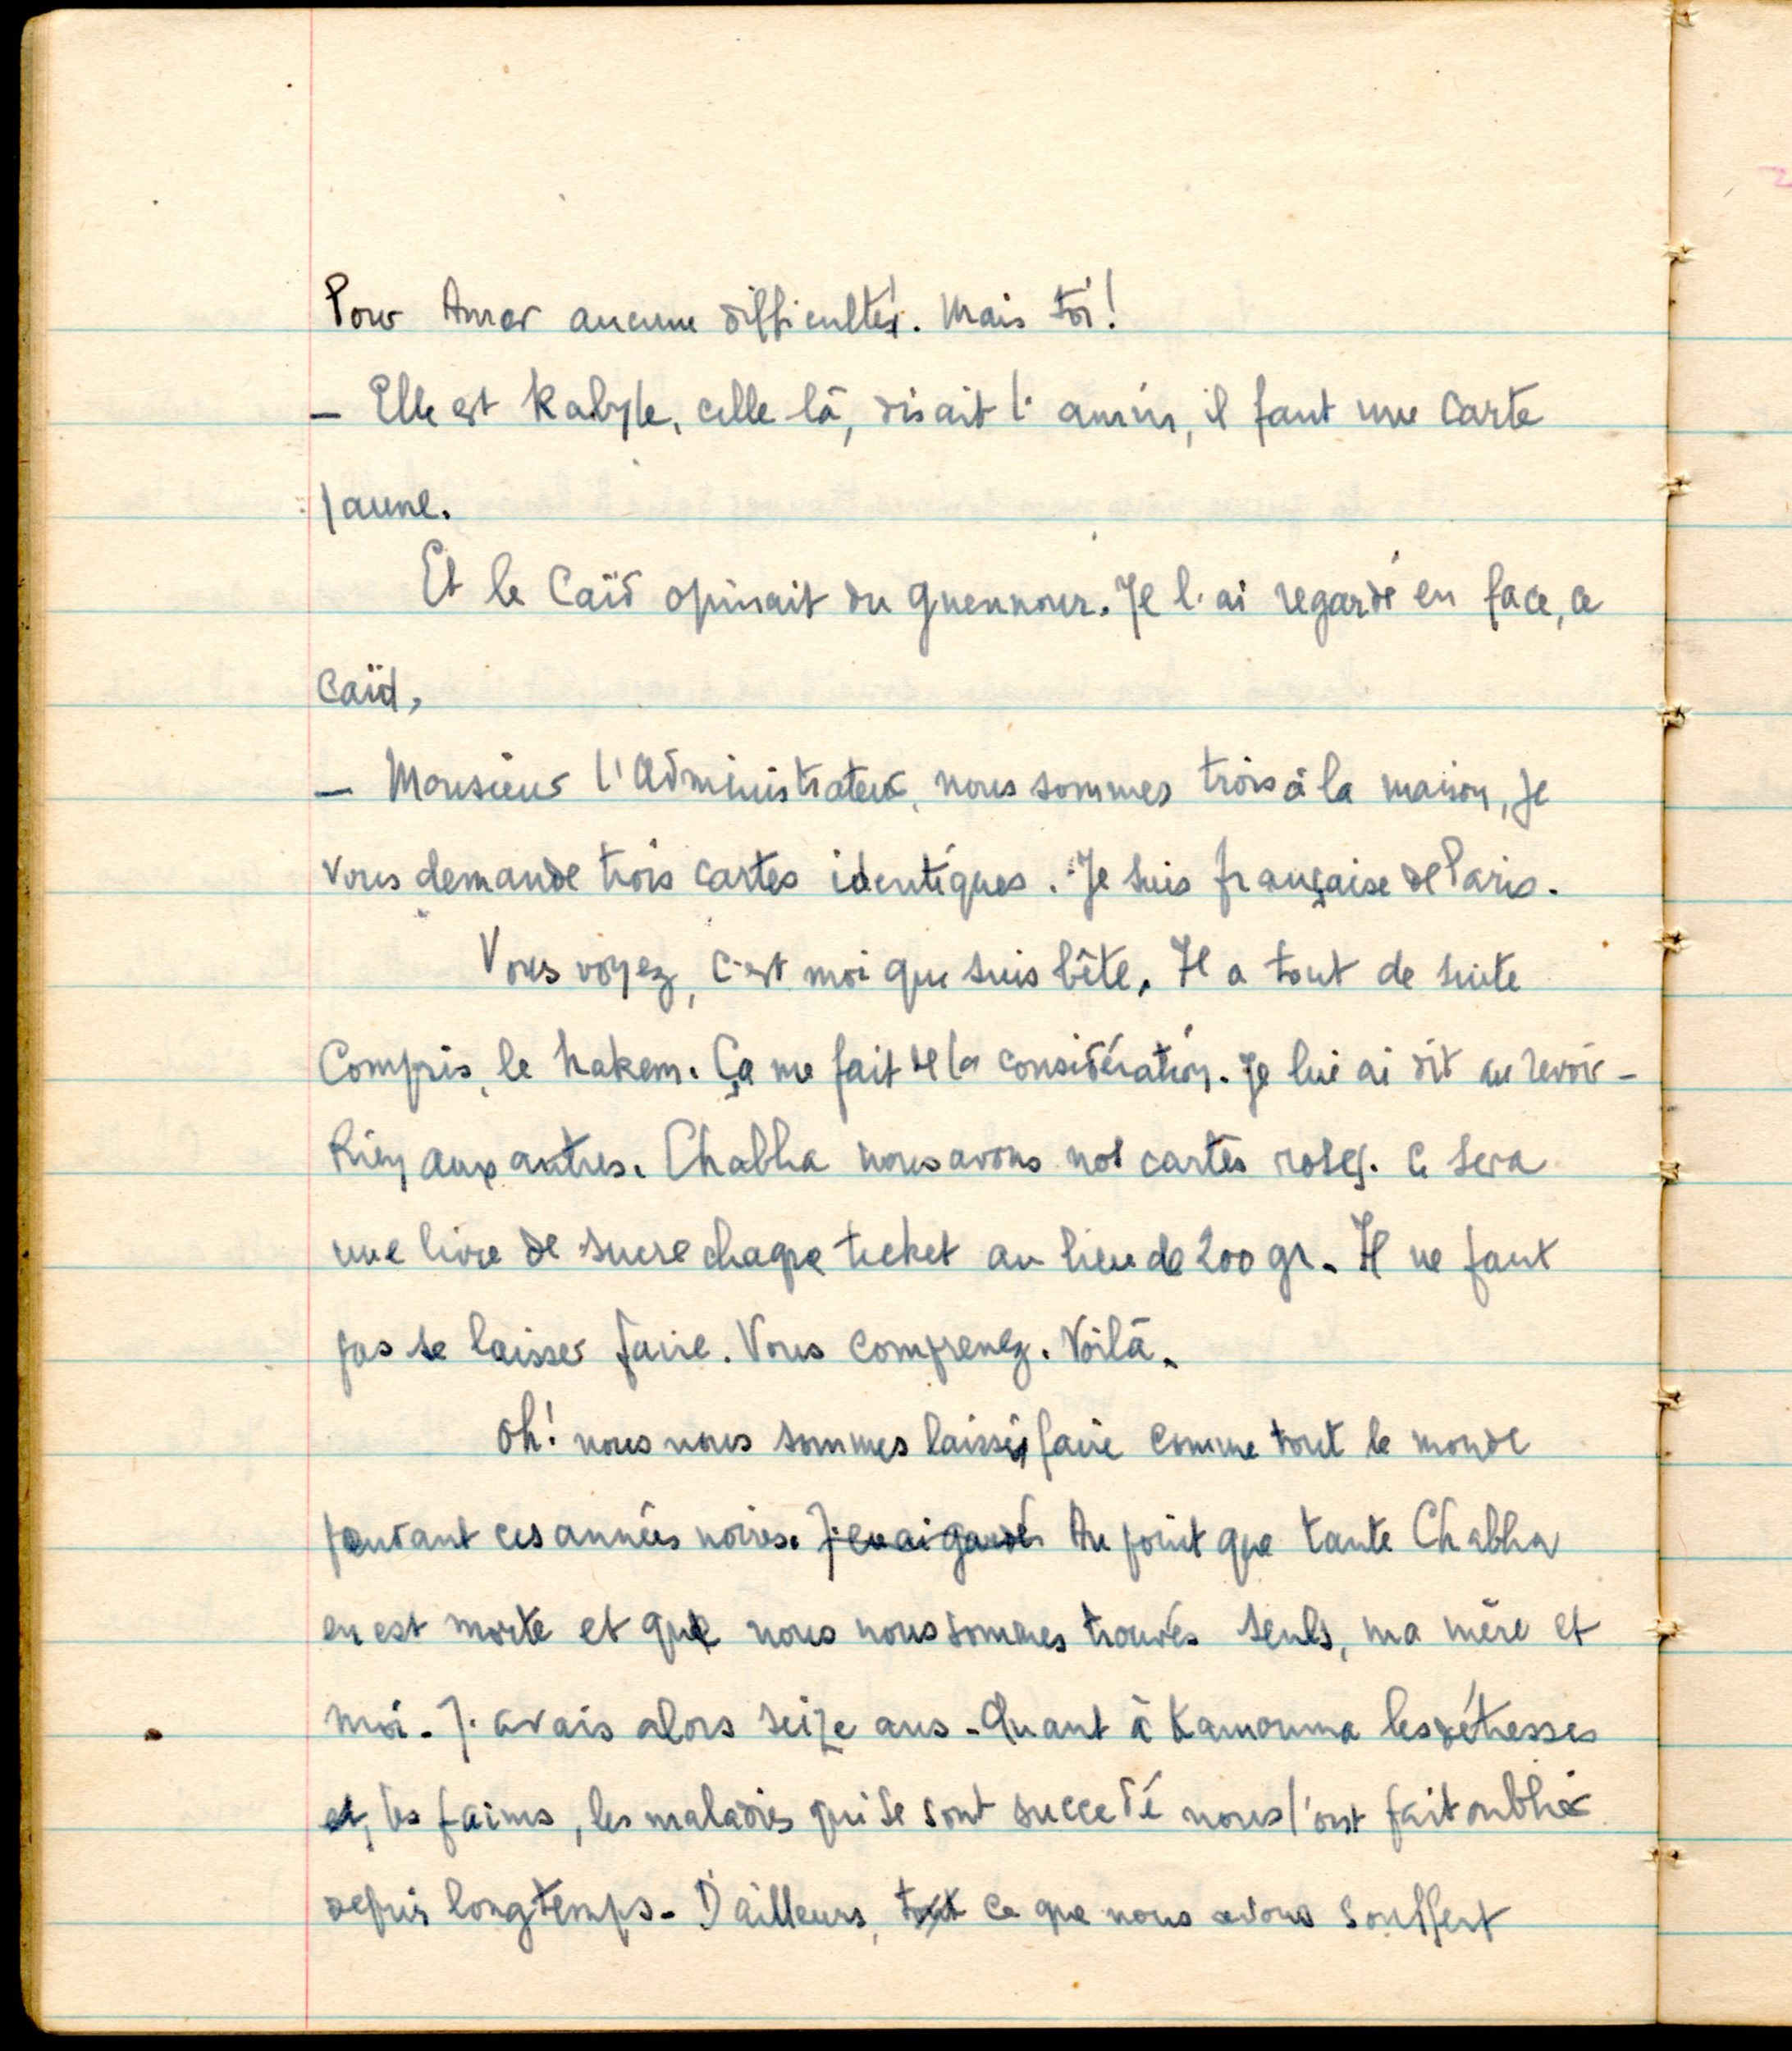 Pour Amer aucune difficulté. Mais toi!
— Elle est Kabyle, celle là, disait l'amin, il faut une carte
jaune.
Et le Caïd opinait du guennour. Je l'ai regardé en face, ce
caïd,
— Monsieur l'Administrateur, nous sommes trois à la maison, je
vous demande trois cartes identiques. Je suis française de Paris.
Vous voyez, c'est moi qui suis bête. Il a tout de suite
compris, le hakem. Ça me fait de la considération. Je lui ai dit au revoir -
Rien aux autres. Chabha nous avons nos cartes roses. Ce sera
une livre de sucre chaque ticket au lieu de 200 gr. Il ne faut
pas se laisser faire. Vous comprenez. Voilà.
Oh! nous nous sommes laissé faire comme tout le monde
pendant ces années noires. J'en ai gardé Au point que tante Chabha
en est morte et que nous nous sommes trouvés seuls, ma mère et
moi. J'avais alors seize ans. Quant à Kamouma les détresses
et, les faims, les maladies qui se sont succedé nous l'ont fait oublier
depuis longtemps. D'ailleurs, tout ce que nous avons souffert